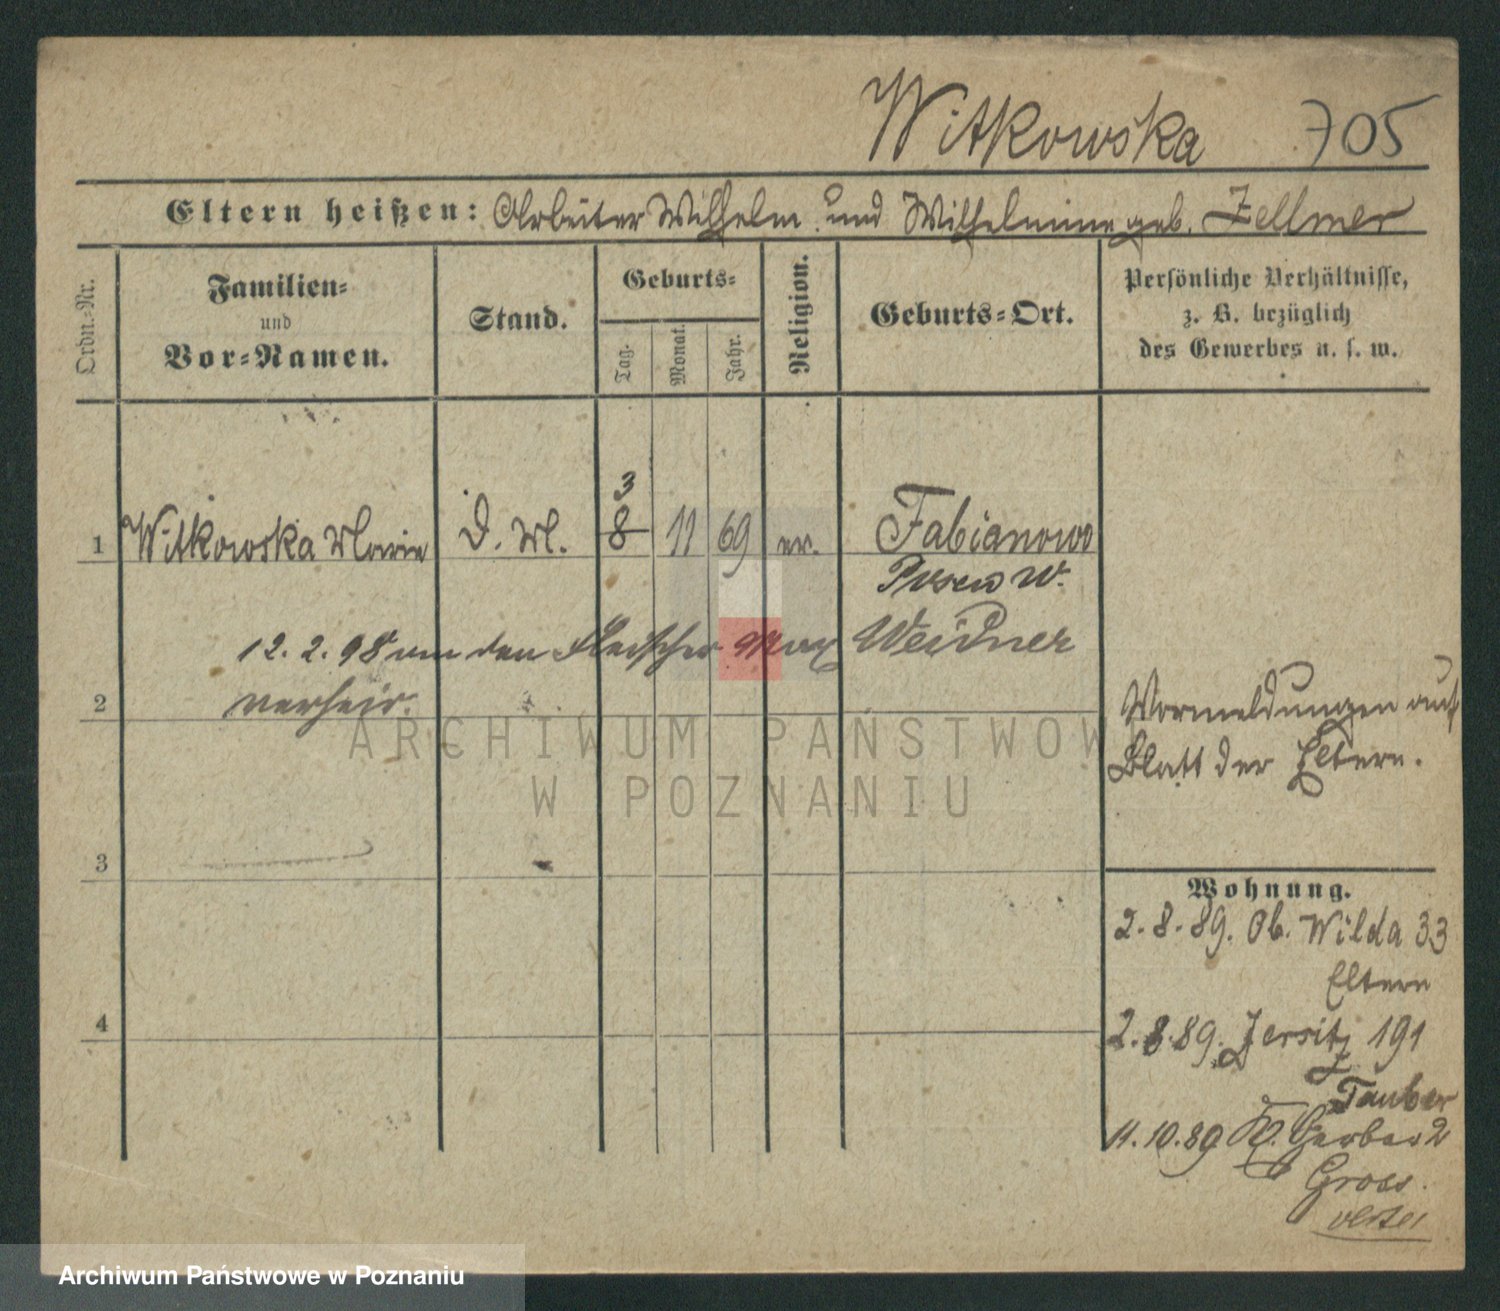 Witkowska 705
Eltern heißen: Arbeiter Wilhelm und Wilhelmine geb. Zellmer
Ordn.-Nr.
Familien-
und
Vor-Namen.
Stand.
Geburts-
Tag.
Monat.
Jahr.
Religion.
Geburts-Ort.
Persönliche Verhältnisse,
z. B. bezüglich
des Gewerbes u. s. w.
3
1 Witkowska Marie D. M. 8 11 69 ev. Fabianowo
Posen W.
12. 2. 98 an den Fleischer Max Weidner
2 verheir.
Vormeldungen auf
Blatt der Eltern.
ARCHIWUM PAŃSTWOW
W POZNANIU
3
Wohnung.
2. 8. 89. Ob. Wilda 33
Eltern
4
2. 8. 89. Jersitz 191
Tauber
11. 10. 89 Kl. Gerber 2
Gross.
Archiwum Państwowe w Poznaniu